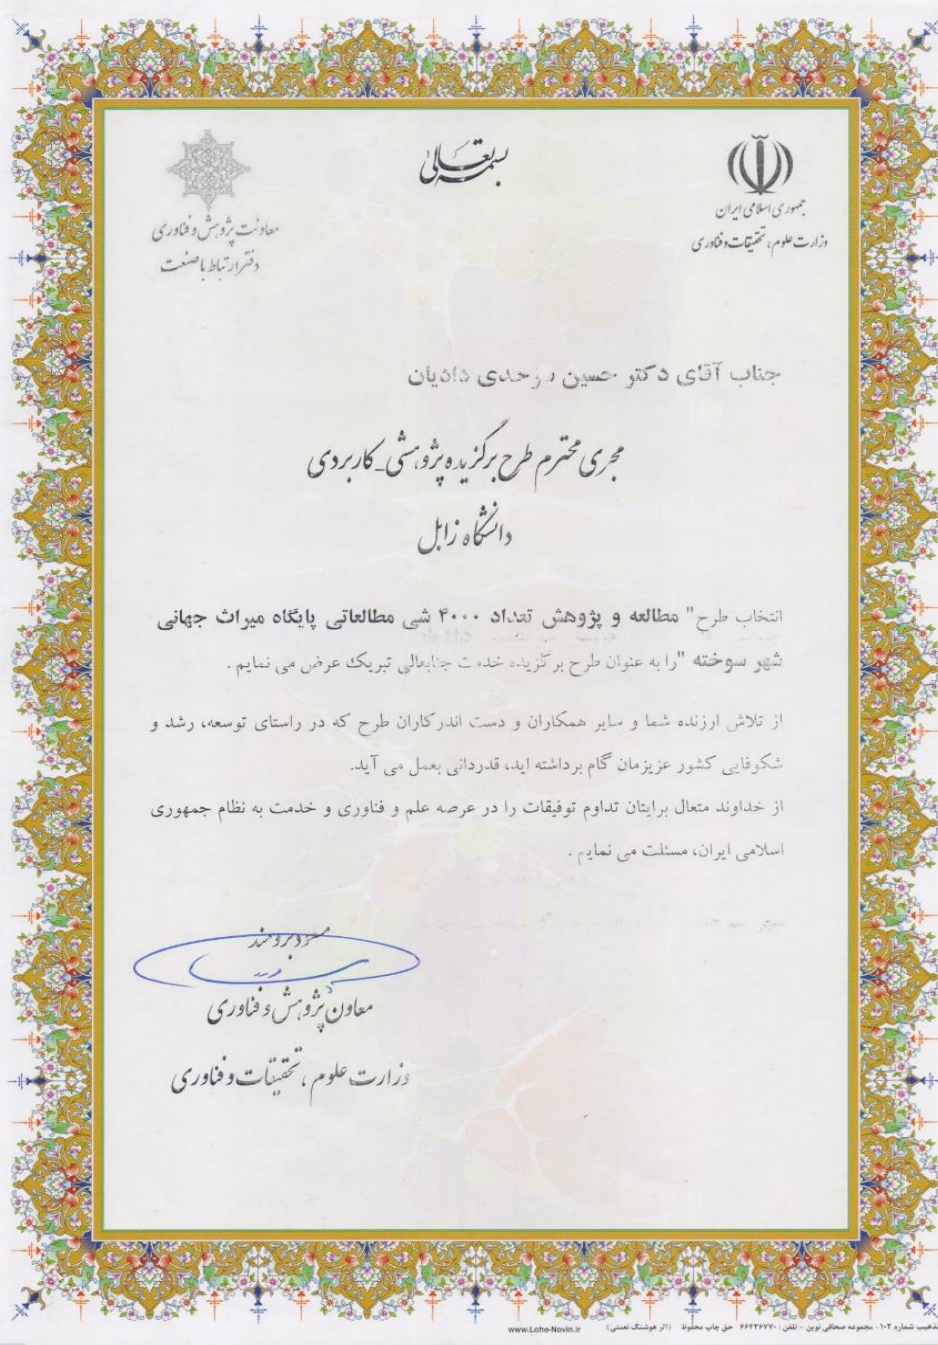 بسمه تعالی
جمهوری اسلامی ایران
وزارت علوم، تحقیقات و فناوری
معاونت پژوهش و فناوری
دفتر ارتباط با صنعت
جناب آقای دکتر حسین دادیان
مجری محترم طرح برگزیده پژوهشی-کاربردی
دانشگاه زابل
انتخاب طرح" مطالعه و پژوهش تعداد ۴۰۰۰ شی مطالعاتی پایگاه میراث جهانی
شهر سوخته "را به عنوان طرح برگزیده خدمت جنابعالی تبریک عرض می نمایم .
از تلاش ارزنده شما و سایر همکاران و دست اندرکاران طرح که در راستای توسعه، رشد و
شکوفایی کشور عزیزمان گام برداشته اید، قدردانی بعمل می آید.
از خداوند متعال برایتان تداوم توفیقات را در عرصه علم و فناوری و خدمت به نظام جمهوری
اسلامی ایران، مسئلت می نمایم .
مسعود برومند
معاون پژوهش و فناوری
وزارت علوم ، تحقیقات و فناوری
تذهیب شماره ۱۰۲ - مجموعه صحافی نوین - تلفن : ۶۶۴۲۶۷۷۰ حق چاپ محفوظ (اثر هوشنگ نعمتی) www.Lohe-Novin.ir